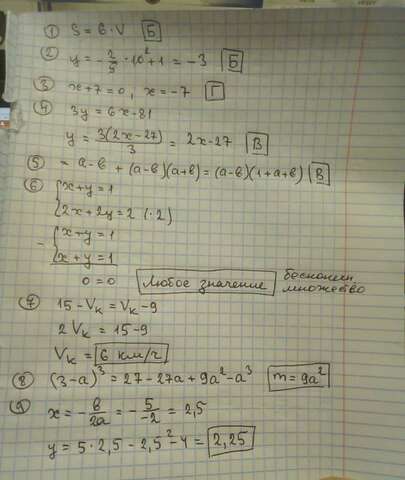 ① S = 6·V Б
② y = -2/5 · 10² + 1 = -3 Б
③ x+7=0, x=-7 Г
④ 3y = 6x-81
y = 3(2x-27)/3 = 2x-27 В
⑤ = a-b + (a-b)(a+b) = (a-b)(1+a+b) В
⑥ { x+y=1
{ 2x+2y=2 (·2)
- { x+y=1
{ x+y=1
0=0 Любое значение бесконечн множество
⑦ 15-Vк = Vк-9
2Vк = 15-9
Vк = 6 км/г
⑧ (3-a)³ = 27-27a+9a²-a³ m=9a²
⑨ x = -b/2a = -5/-2 = 2,5
y = 5·2,5 - 2,5² - 4 = 2,25